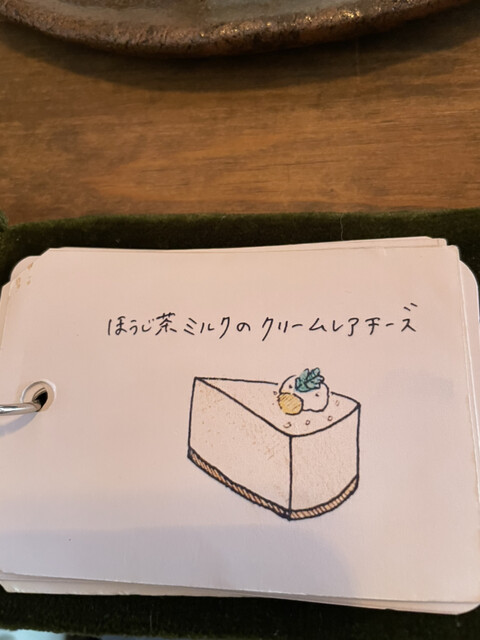 ほうじ茶ミルクのクリームレアチーズ